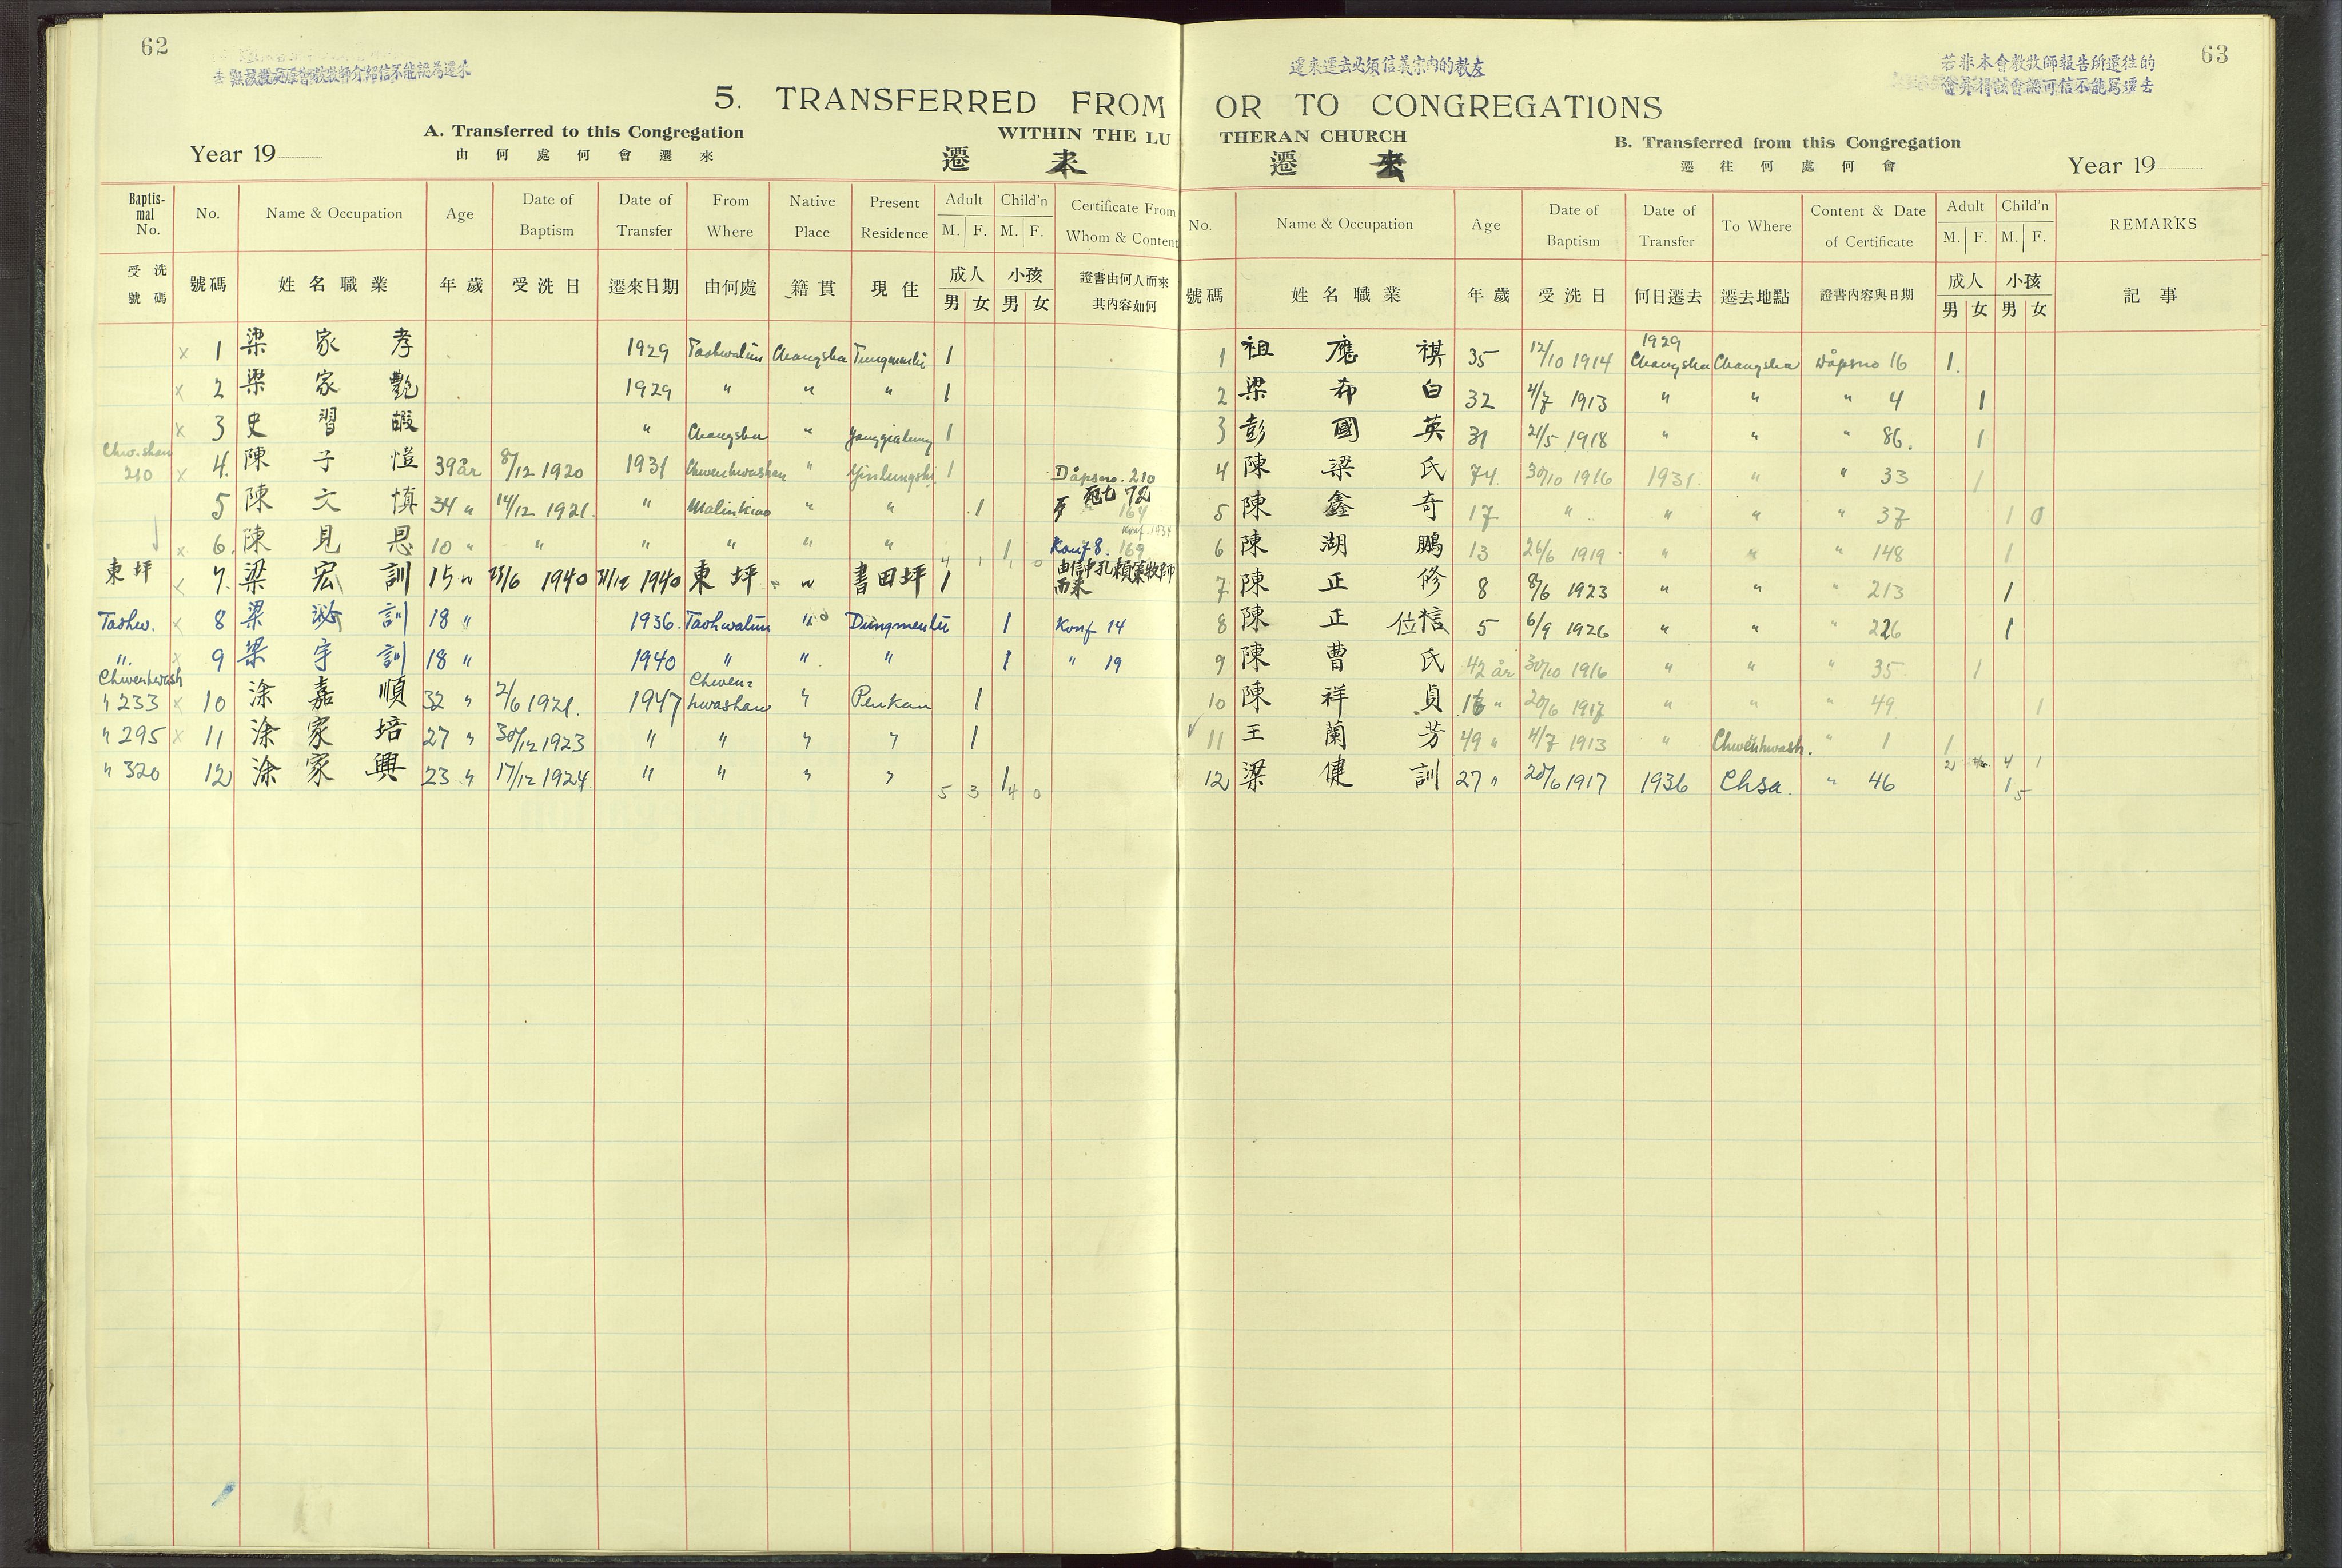 62
會教牧師介紹信不能認為遷來
遷來遷去必須信義宗內的教友
若非本會教牧師報告所遷往的
會并得該會認可信不能寫遷去
63
5. TRANSFERRED FROM OR TO CONGREGATIONS
A. Transferred to this Congregation
WITHIN THE LUTHERAN CHURCH
B. Transferred from this Congregation
Year 19
由何處何會遷來
遷來
遷去
遷往何處何會
Year 19
Baptismal No. No. Name & Occupation Age Date of Baptism Date of Transfer From Where Native Place Present Residence Adult M. F. Child'n M. F. Certificate From Whom & Content
受洗號碼 號碼 姓名職業 年歲 受洗日 遷來日期 由何處 籍貫 現住 成人 男 女 小孩 男 女 證書由何人而來其內容如何
x 1 梁家孝 1929 Taohwalün Changsha Tungmenli 1
x 2 梁家艷 1929 " " " 1
x 3 史習嘏 " Changsha " Yanggialung 1
Chw.shan 210 x 4. 陳子愷 39 år 8/12 1920 1931 Chwenhwashan " Yinlungshi 1 Dåpsno. 210
5 陳文慎 34 " 14/12 1921. " Malinkiao " " 1 死亡 72 164
x 6. 陳見恩 10 " " " " " " 1 Konf 8. 169 Konf. 1934
4 1 1 0
東坪 x 7. 梁宏訓 15 " 23/6 1940 31/12 1940 東坪 " 書田坪 1 由信中孔賴簾牧師而來
Taohw. x 8 梁泌訓 18 " 1936. Taohwalün " Dungmenli 1 Konf 14
". x 9 梁宇訓 18 " 1940 " " " 1 " 19
Chwenhwash " 233 x 10 涂嘉順 32 " 2/6 1921. 1947 Chwen=hwashan " Penkan 1
" 295 x 11 涂家培 27 " 30/12 1923 " " " " 1
" 320 12 涂家興 23 " 17/12 1924 " " " " 1
5 3 4 0
No. Name & Occupation Age Date of Baptism Date of Transfer To Where Content & Date of Certificate Adult M. F. Child'n M. F. REMARKS
號碼 姓名職業 年歲 受洗日 何日遷去 遷去地點 證書內容與日期 成人 男 女 小孩 男 女 記事
1 祖應祺 35 12/10 1914 1929 Changsha Changsha Dåpsno 16 1.
2 梁希白 32 4/7 1913 " " " 4 1
3 彭國英 31 21/5 1918 " " " 86. 1
4 陳梁氏 74. 30/10 1916 1931. " " 33 1
5 陳鑫奇 17 " " " " 37 1 0
6 陳湖鵬 13 26/6 1919 " " " 148 1
7 陳正修 8 8/6 1923 " " " 213 1
8 陳正信 5 6/9 1926 " " " 226 1
9 陳曹氏 42 år 30/10 1916 " " " 35 1
10 陳祥貞 16 " 20/6 1917 " " " 49 1
11 王蘭芳 49 " 4/7 1913 " Chwenhwash. " 1 1
2 4 4 1
12 梁健訓 27 " 20/6 1917 1936 Chsa. " 46 1
5